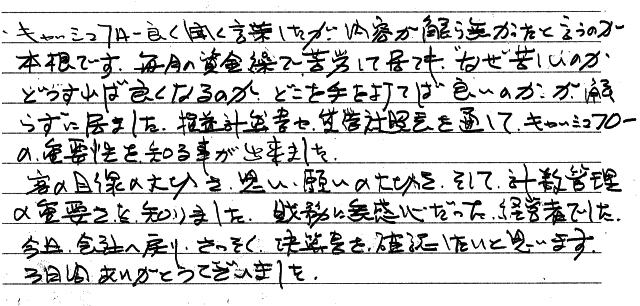 ・キャッシュフロー良く聞く言葉したが内容が解ら無かったと言うのが
本根です。毎月の資金繰で苦労して居ても、なぜ苦しいのか
どうすれば良くなるのか、どこを手を打てば良いのか、が解
らずに居ました。損益計算書や、貸借対照表を通して、キャッシュフロー
の、重要性を知る事が出来ました。
客の目線の大切さ、思い、願いの大切さ、そして、計数管理
の重要さを、知りました。財務に無関心だった、経営者でした。
今日、会社へ戻り、さっそく、決算書を、確認したいと思います。
3日間ありがとうございました。